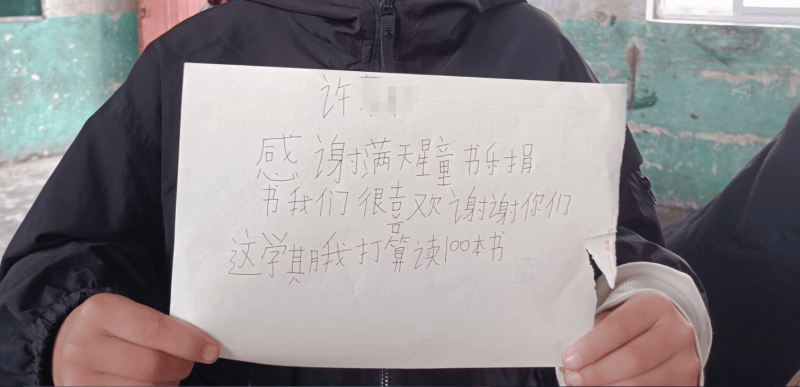 许
感谢满天星童书乐捐
书我们很喜欢谢谢你们
这学期我打算读100本书